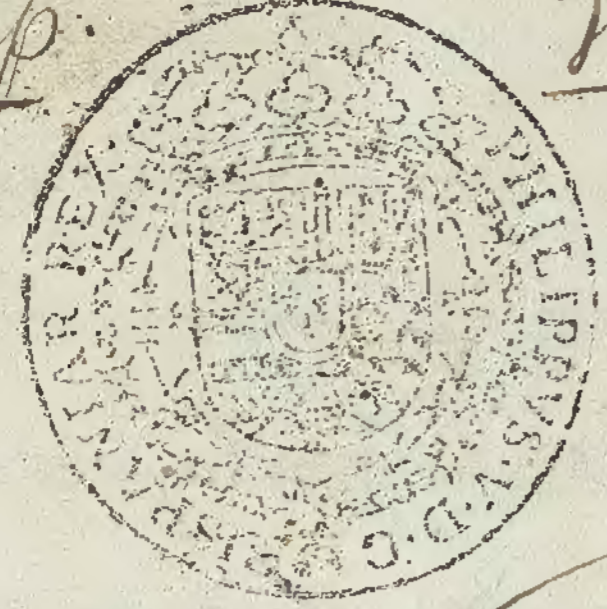 PHILIPPVS · V · D · G · HISPANIAR REX
p.